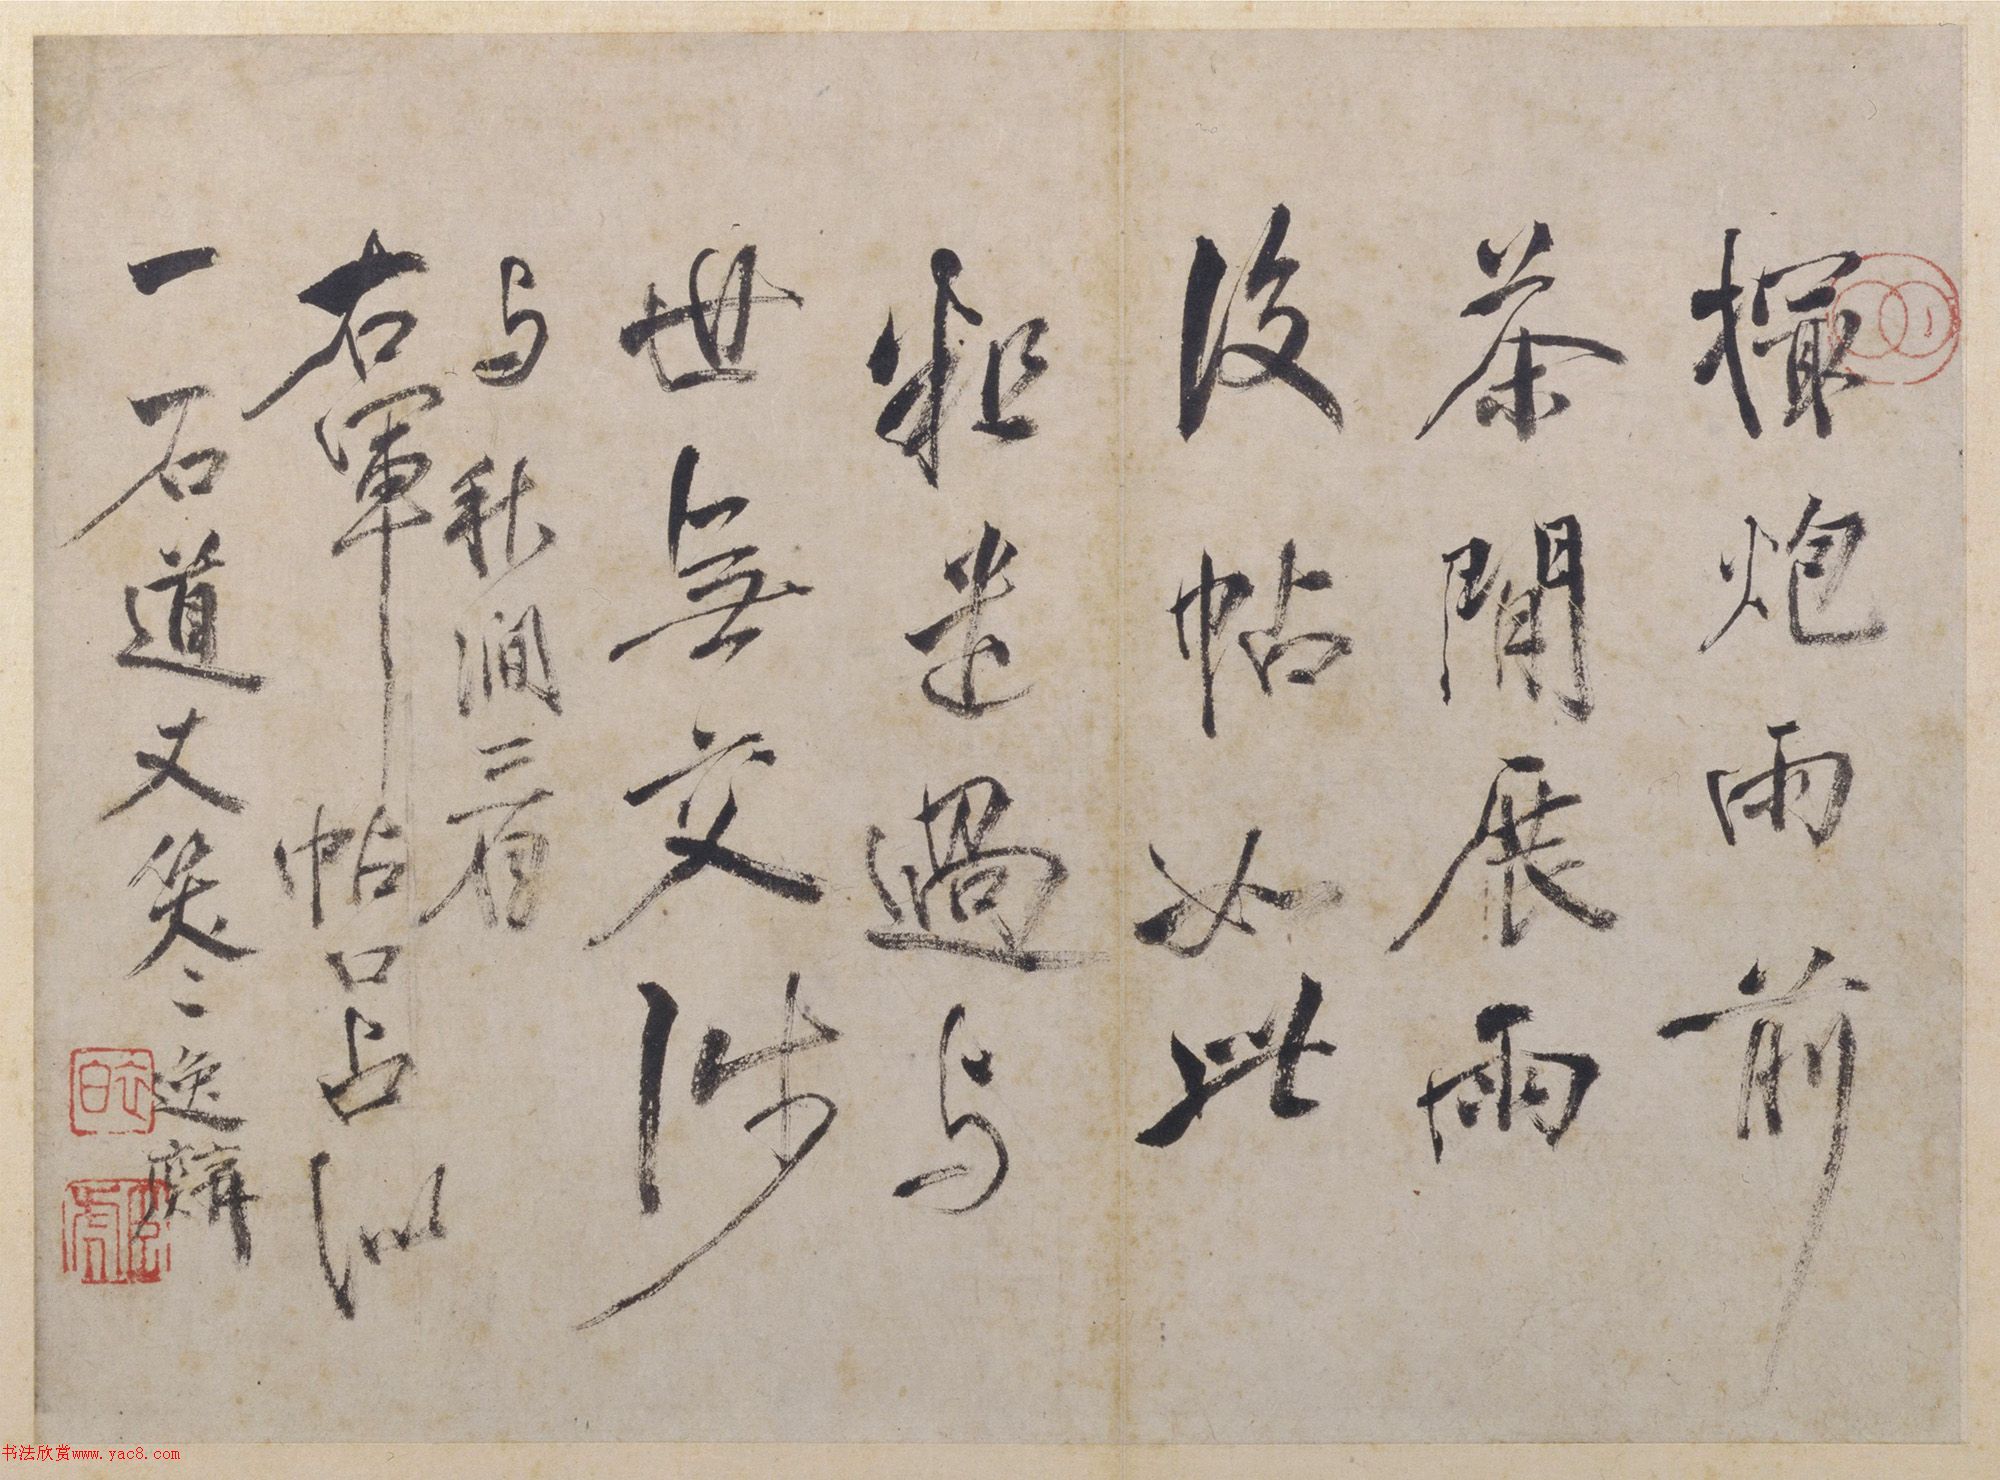 撮炮雨前
茶閒展雨
後帖如此
粗造過与
世無交涉
与秋澗三首
右軍帖口占似
一石道丈笑笑逸驎
书法欣赏www.yac8.com